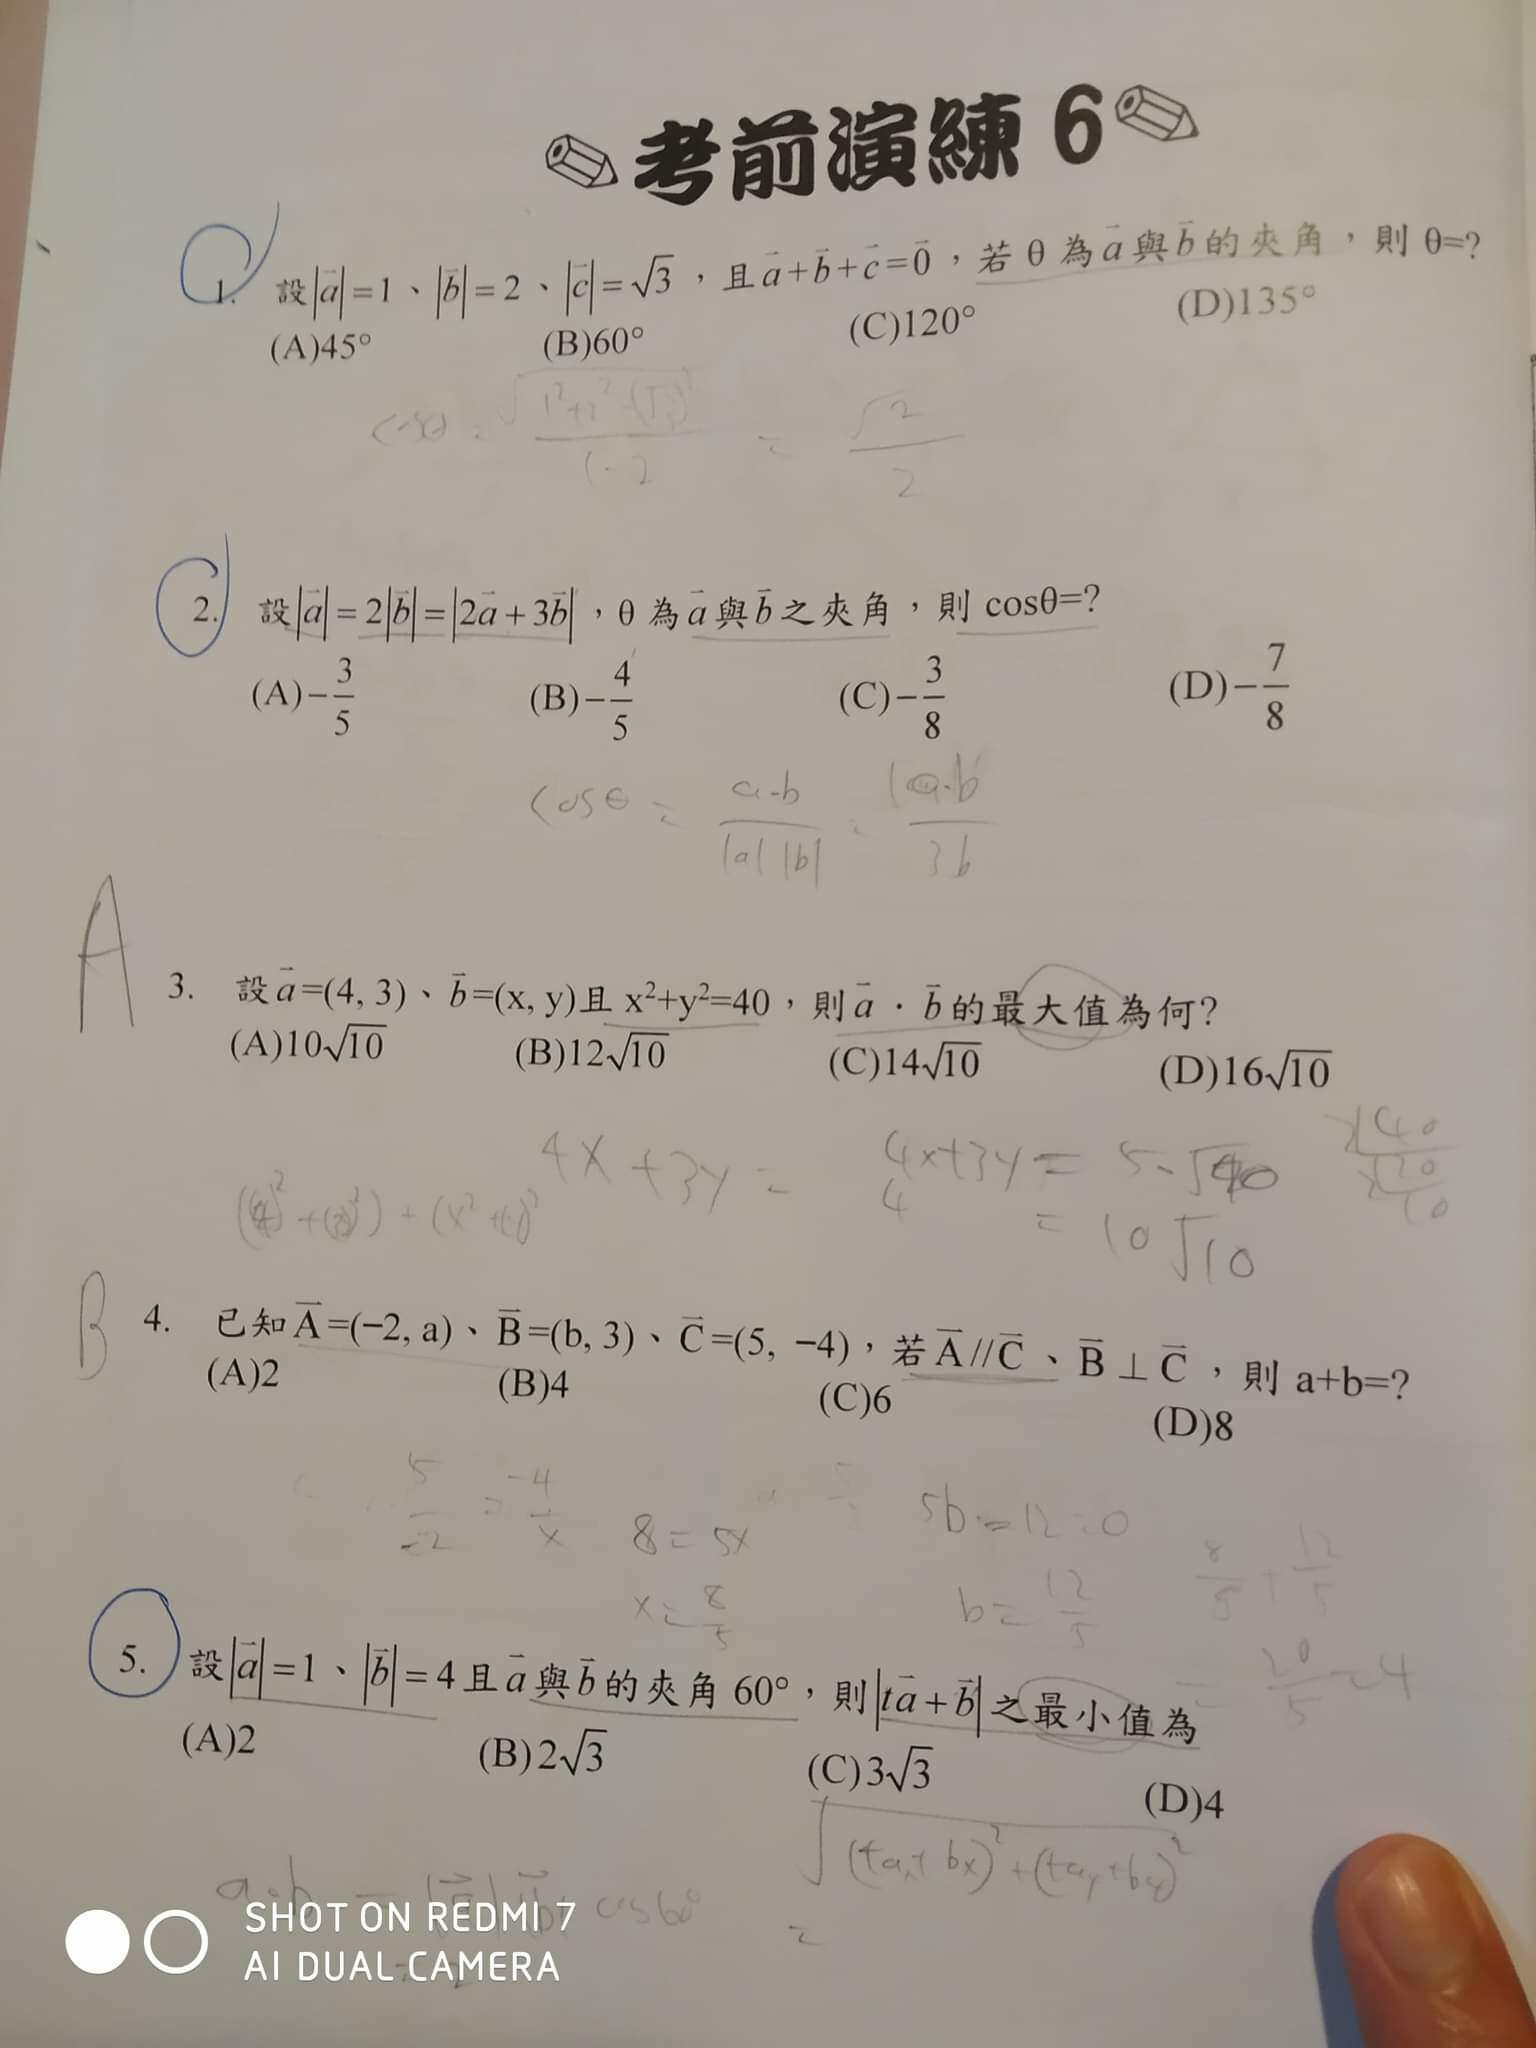 考前演練 6
1. 設|a|=1、|b|=2、|c|=√3，且a+b+c=0，若 θ 為a與b的夾角，則 θ=?
(A)45° (B)60° (C)120° (D)135°
cosθ = √(1²+2²-(√3)²) / (1·2) = √2/2
2. 設|a|=2|b|=|2a+3b|，θ 為a與b之夾角，則 cosθ=?
(A)-3/5 (B)-4/5 (C)-3/8 (D)-7/8
cosθ = a·b / |a||b| =
A
3. 設a=(4, 3)、b=(x, y)且 x²+y²=40，則a · b的最大值為何?
(A)10√10 (B)12√10 (C)14√10 (D)16√10
4x+3y = 4x+3y = 5·√40
= 10√10
B
4. 已知A=(−2, a)、B=(b, 3)、C=(5, −4)，若A//C、B⊥C，則 a+b=?
(A)2 (B)4 (C)6 (D)8
5/-2 = -4/x 8=5x 5b-12=0
x=8/5 b=12/5 8/5+12/5
= 20/5 = 4
5. 設|a|=1、|b|=4且a與b的夾角 60°，則|ta+b|之最小值為
(A)2 (B)2√3 (C)3√3 (D)4
a·b = |a||b| cos60°
SHOT ON REDMI 7
AI DUAL CAMERA